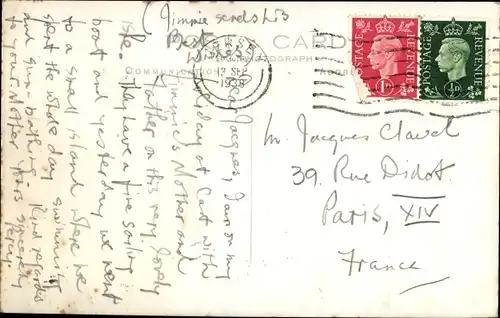 Jimmie sends his
Best
Wishes
POST CARD
PHOTOGRAPH
COMMUNICATION
ADDRESS
12 SEP
1938
POSTAGE
REVENUE
1D
POSTAGE
REVENUE
½D
Dear Jacques, I am on my
holiday at East with
Jimmie's Mother and
Father on this very lovely
isle. They have a fine sailing
boat and yesterday we went
to a small island where we
spent the whole day swimming
and sun-bathing. Kind regards
to your Mother. Yours sincerely
Percy.
M. Jacques Clavel
39. Rue Didot.
Paris, XIV
France